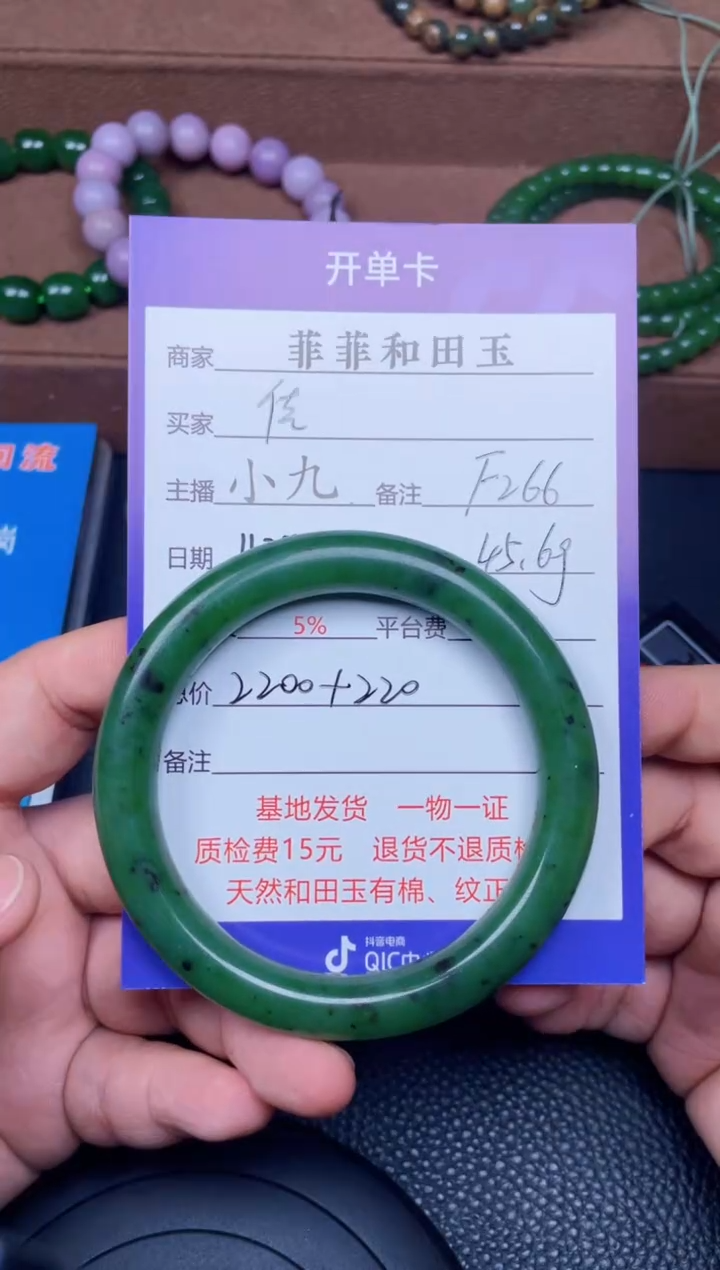 开单卡
商家 菲菲和田玉
买家
主播 小九 备注 F266
日期 45.6g
5% 平台费
价 2200+220
备注
基地发货 一物一证
质检费15元 退货不退质检
天然和田玉有棉、纹正
抖音电商
QIC中
流
岗